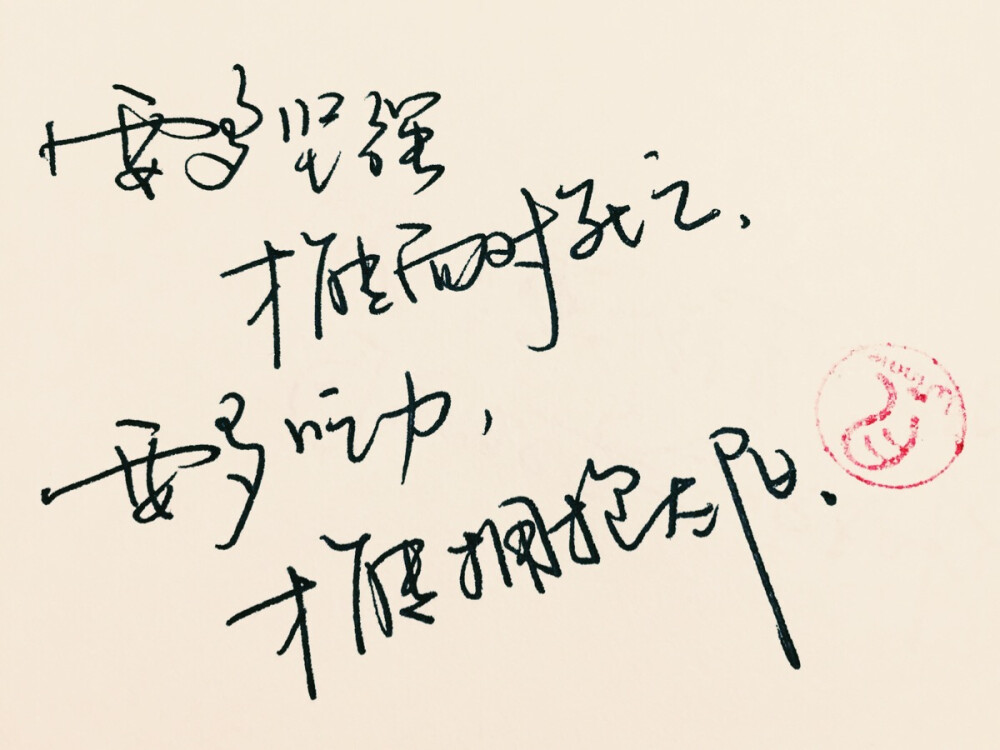 要多坚强
才能面对死亡，
要多吃力，
才能拥抱太阳.